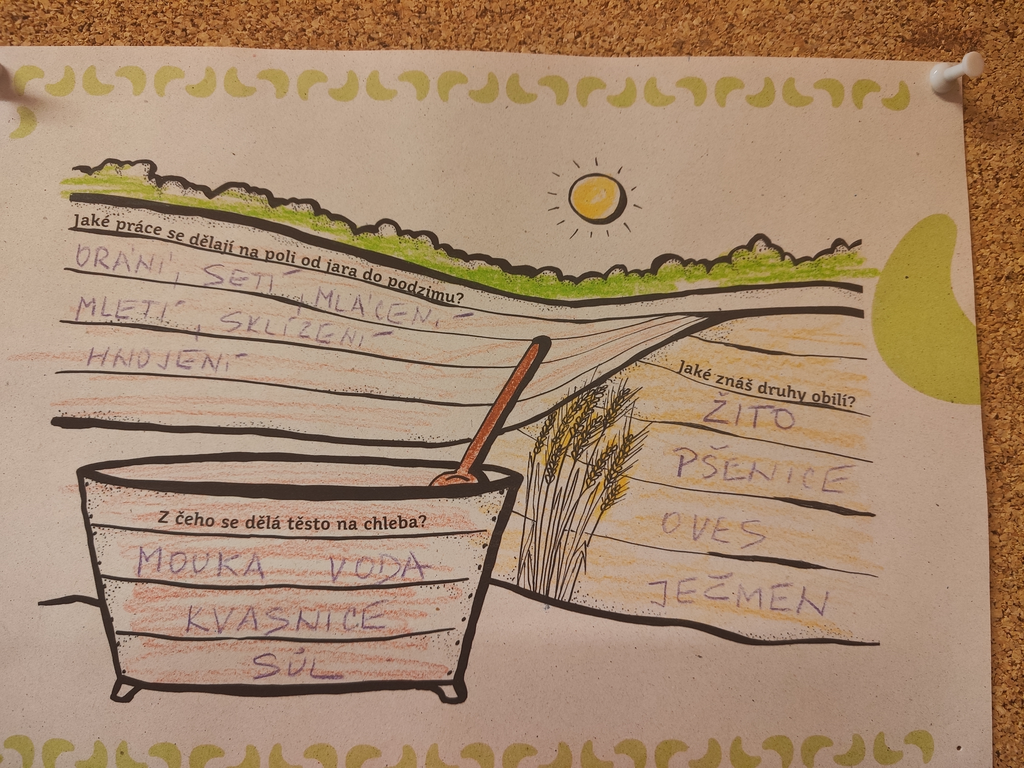 Jaké práce se dělají na poli od jara do podzimu?
ORÁNÍ, SETÍ, MLÁCENÍ
MLETÍ, SKLÍZENÍ
HNOJENÍ
Jaké znáš druhy obilí?
ŽITO
PŠENICE
OVES
JEČMEN
Z čeho se dělá těsto na chleba?
MOUKA VODA
KVASNICE
SŮL